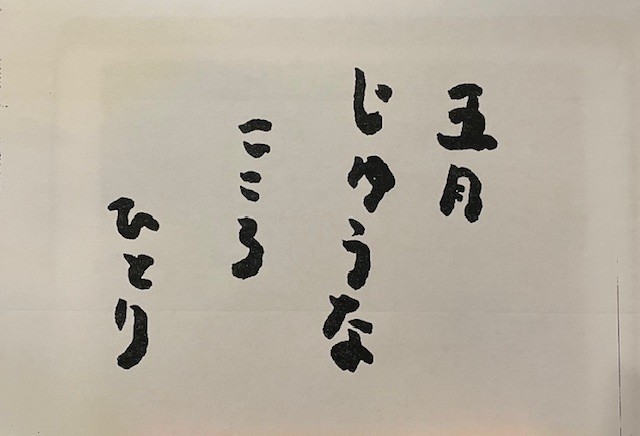 五月
じゆうな
こころ
ひとり